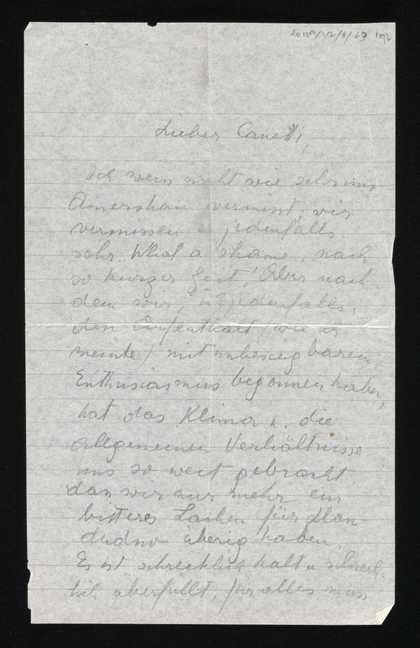 Lieber Canetti,
Ich weiss nicht wie sehr uns
Amersham vermisst, wir
vermissen es jedenfalls
sehr. What a shame, nach
so kurzer Zeit! Aber nach
dem wir jedenfalls,
den Aufenthalt (wie ich
meinte) mit unbezwingbarem
Enthusiasmus begonnen haben,
hat das Klima u. die
allgemeinen Verhältnisse
uns so weit gebracht
dass wir nur mehr ein
bitteres Lachen für Llan-
dudno übrig haben.
Es ist schrecklich kalt u.
überfüllt, für alles muss